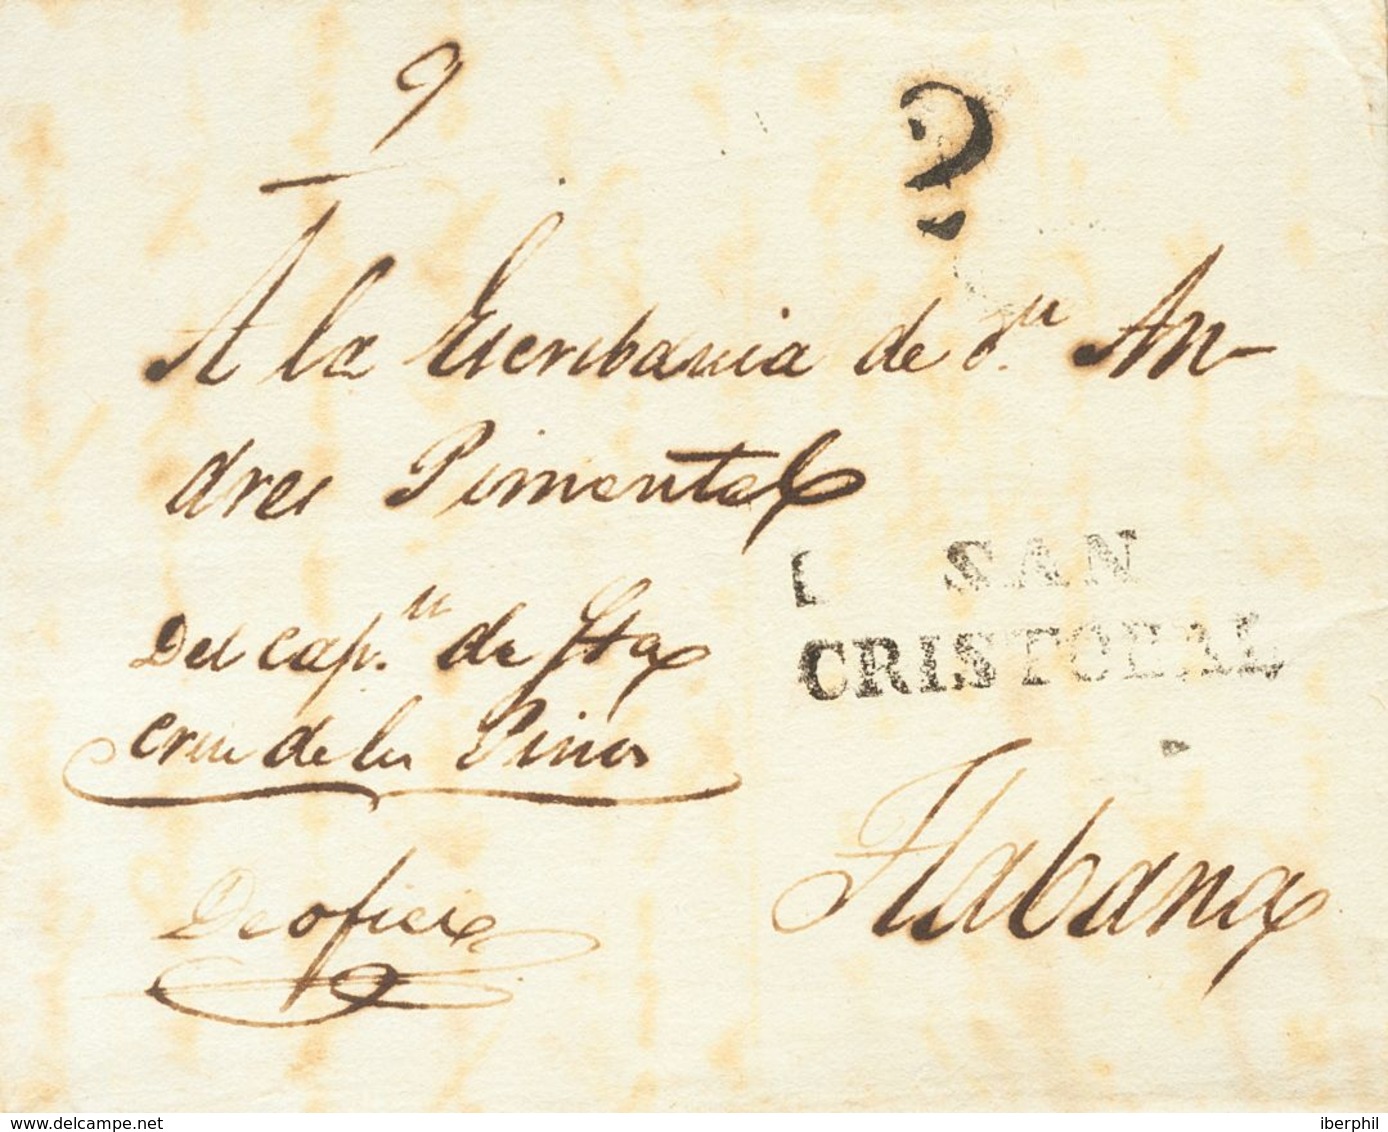 9
2
A la Escribania de d.n An-
dres Pimentel
SAN
CRISTOBAL
Del cap.n de Sta
Cruz de los Pinos
Habana
De oficio
www.delcampe.net
iberphil